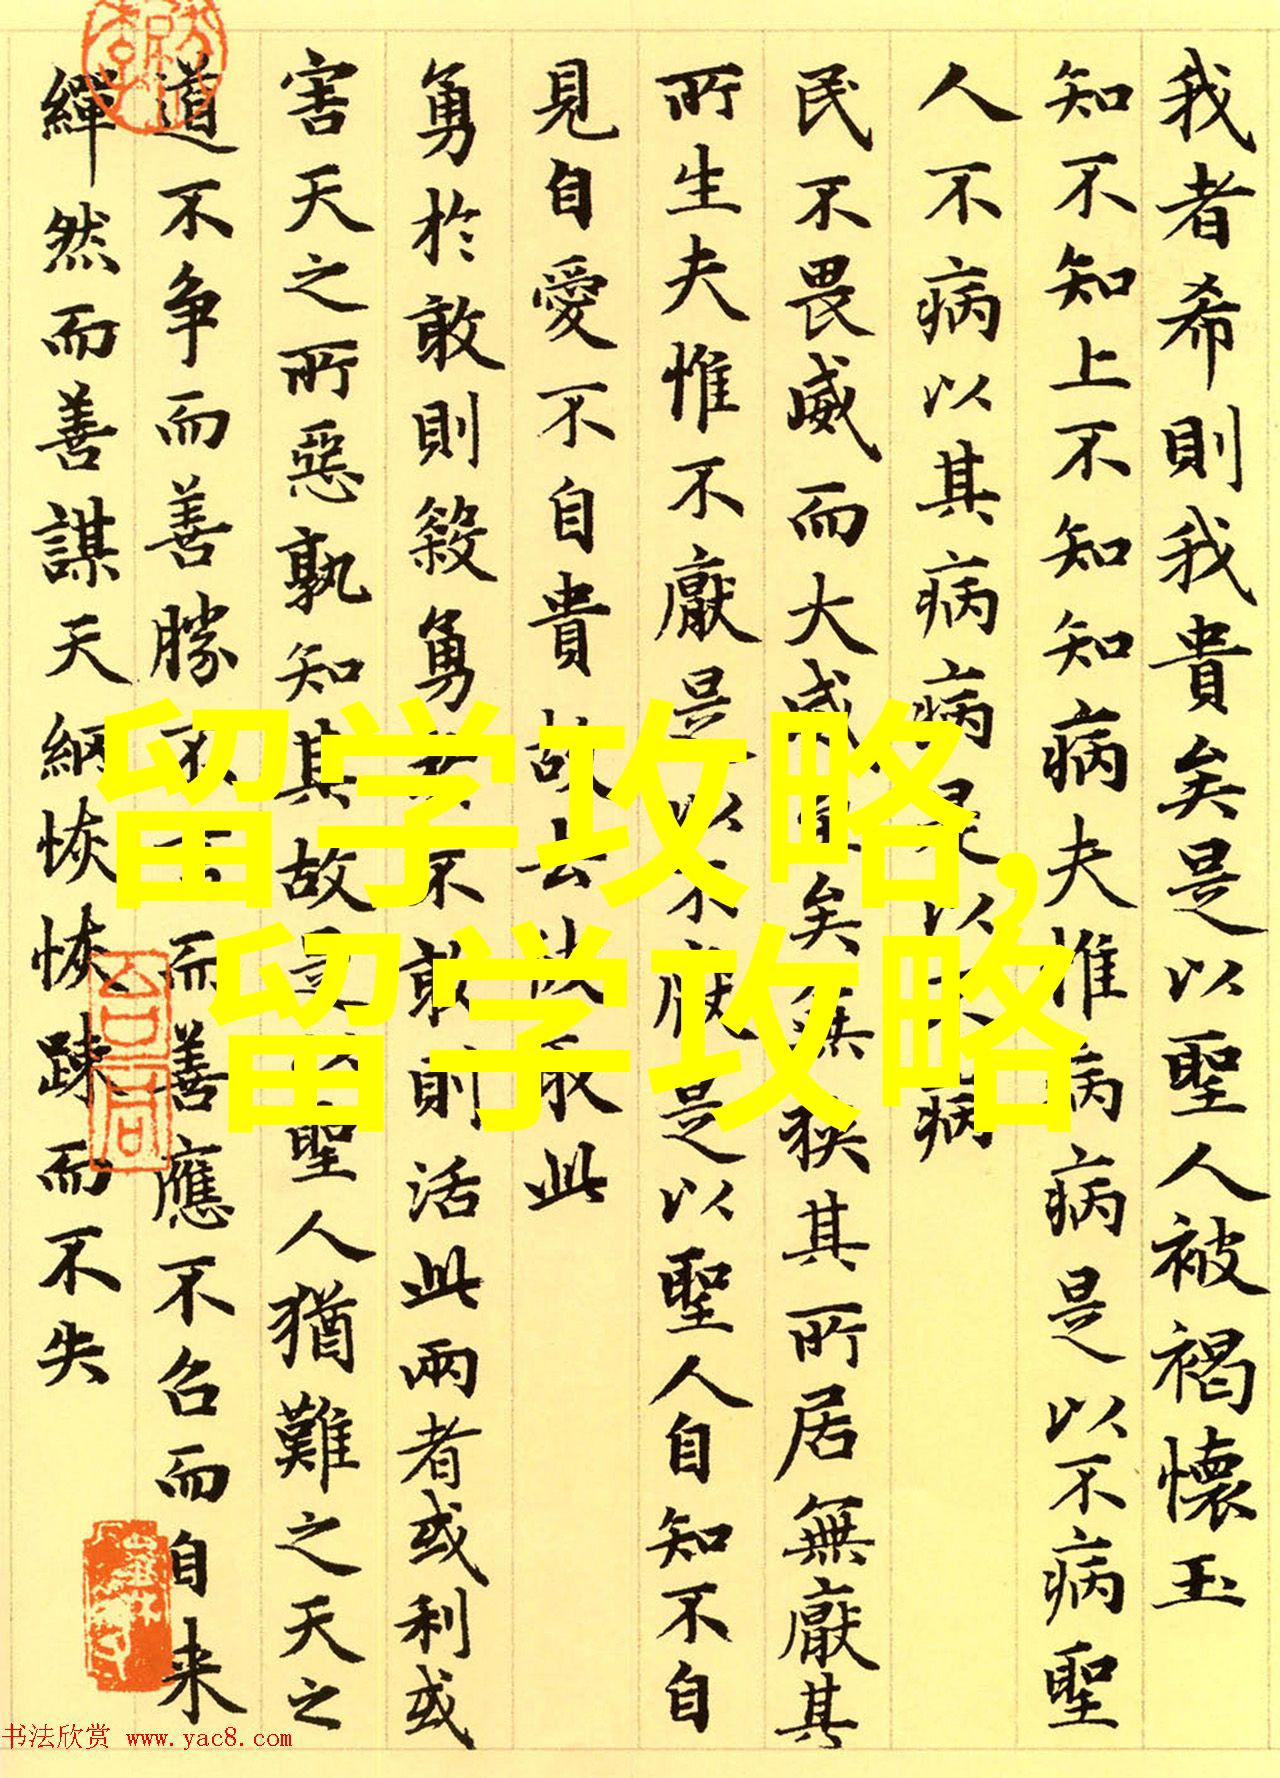 我者希則我貴矣是以聖人被褐懷玉
知不知上不知知病夫惟病病是以不病聖
人不病以其病病是以不病
民不畏威而大威至矣無狹其所居無厭其
所生夫惟不厭是以不厭是以聖人自知不自
見自愛不自貴故去彼取此
勇於敢則殺勇於不敢則活此兩者或利或
害天之所惡孰知其故是以聖人猶難之天之
道不争而善勝不言而善應不召而自来
繟然而善謀天網恢恢踈而不失
留学攻略,
留学攻略
书法欣赏 www.yac8.com